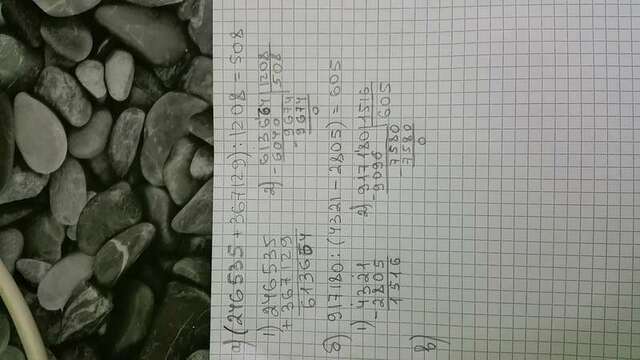 а) (246535 + 367129) : 1208 = 508
1) 246535
+ 367129
613664
2) 613664 | 1208
- 6040 | 508
- 9674
9674
0
б) 917180 : (4321 - 2805) = 605
1) 4321
- 2805
1516
2) 917180 | 1516
- 9096 | 605
- 7580
7580
0
в)